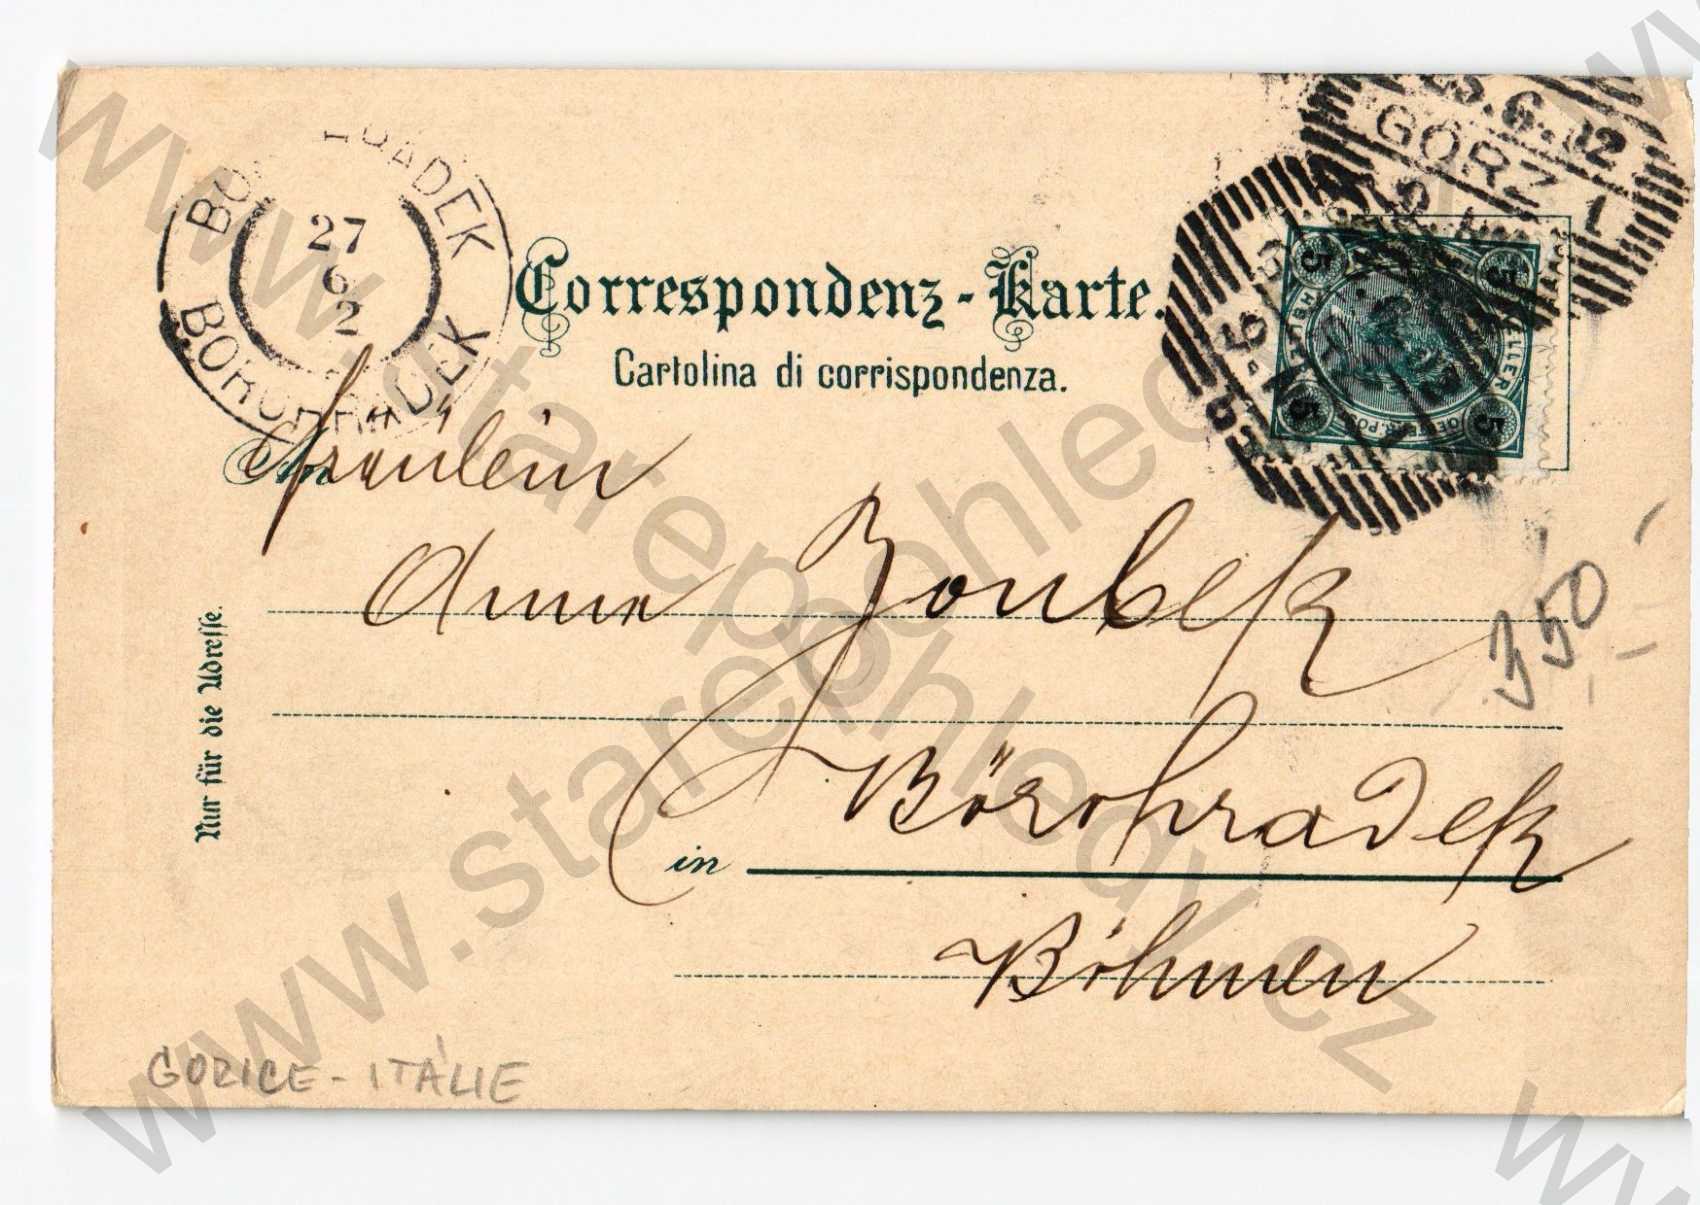 25.6.02
GÖRZ 1
BOROHRADEK
27
6
2
BOROHRADEK
Correspondenz-Karte.
Cartolina di corrispondenza.
5 5
HELLER
5 5
An
Fräulein
Anna Zoubek
350
Nur für die Adresse.
in Börohradek
Böhmen
GORICE - ITÁLIE
www.starepohledy.cz
www.starepohledy.cz